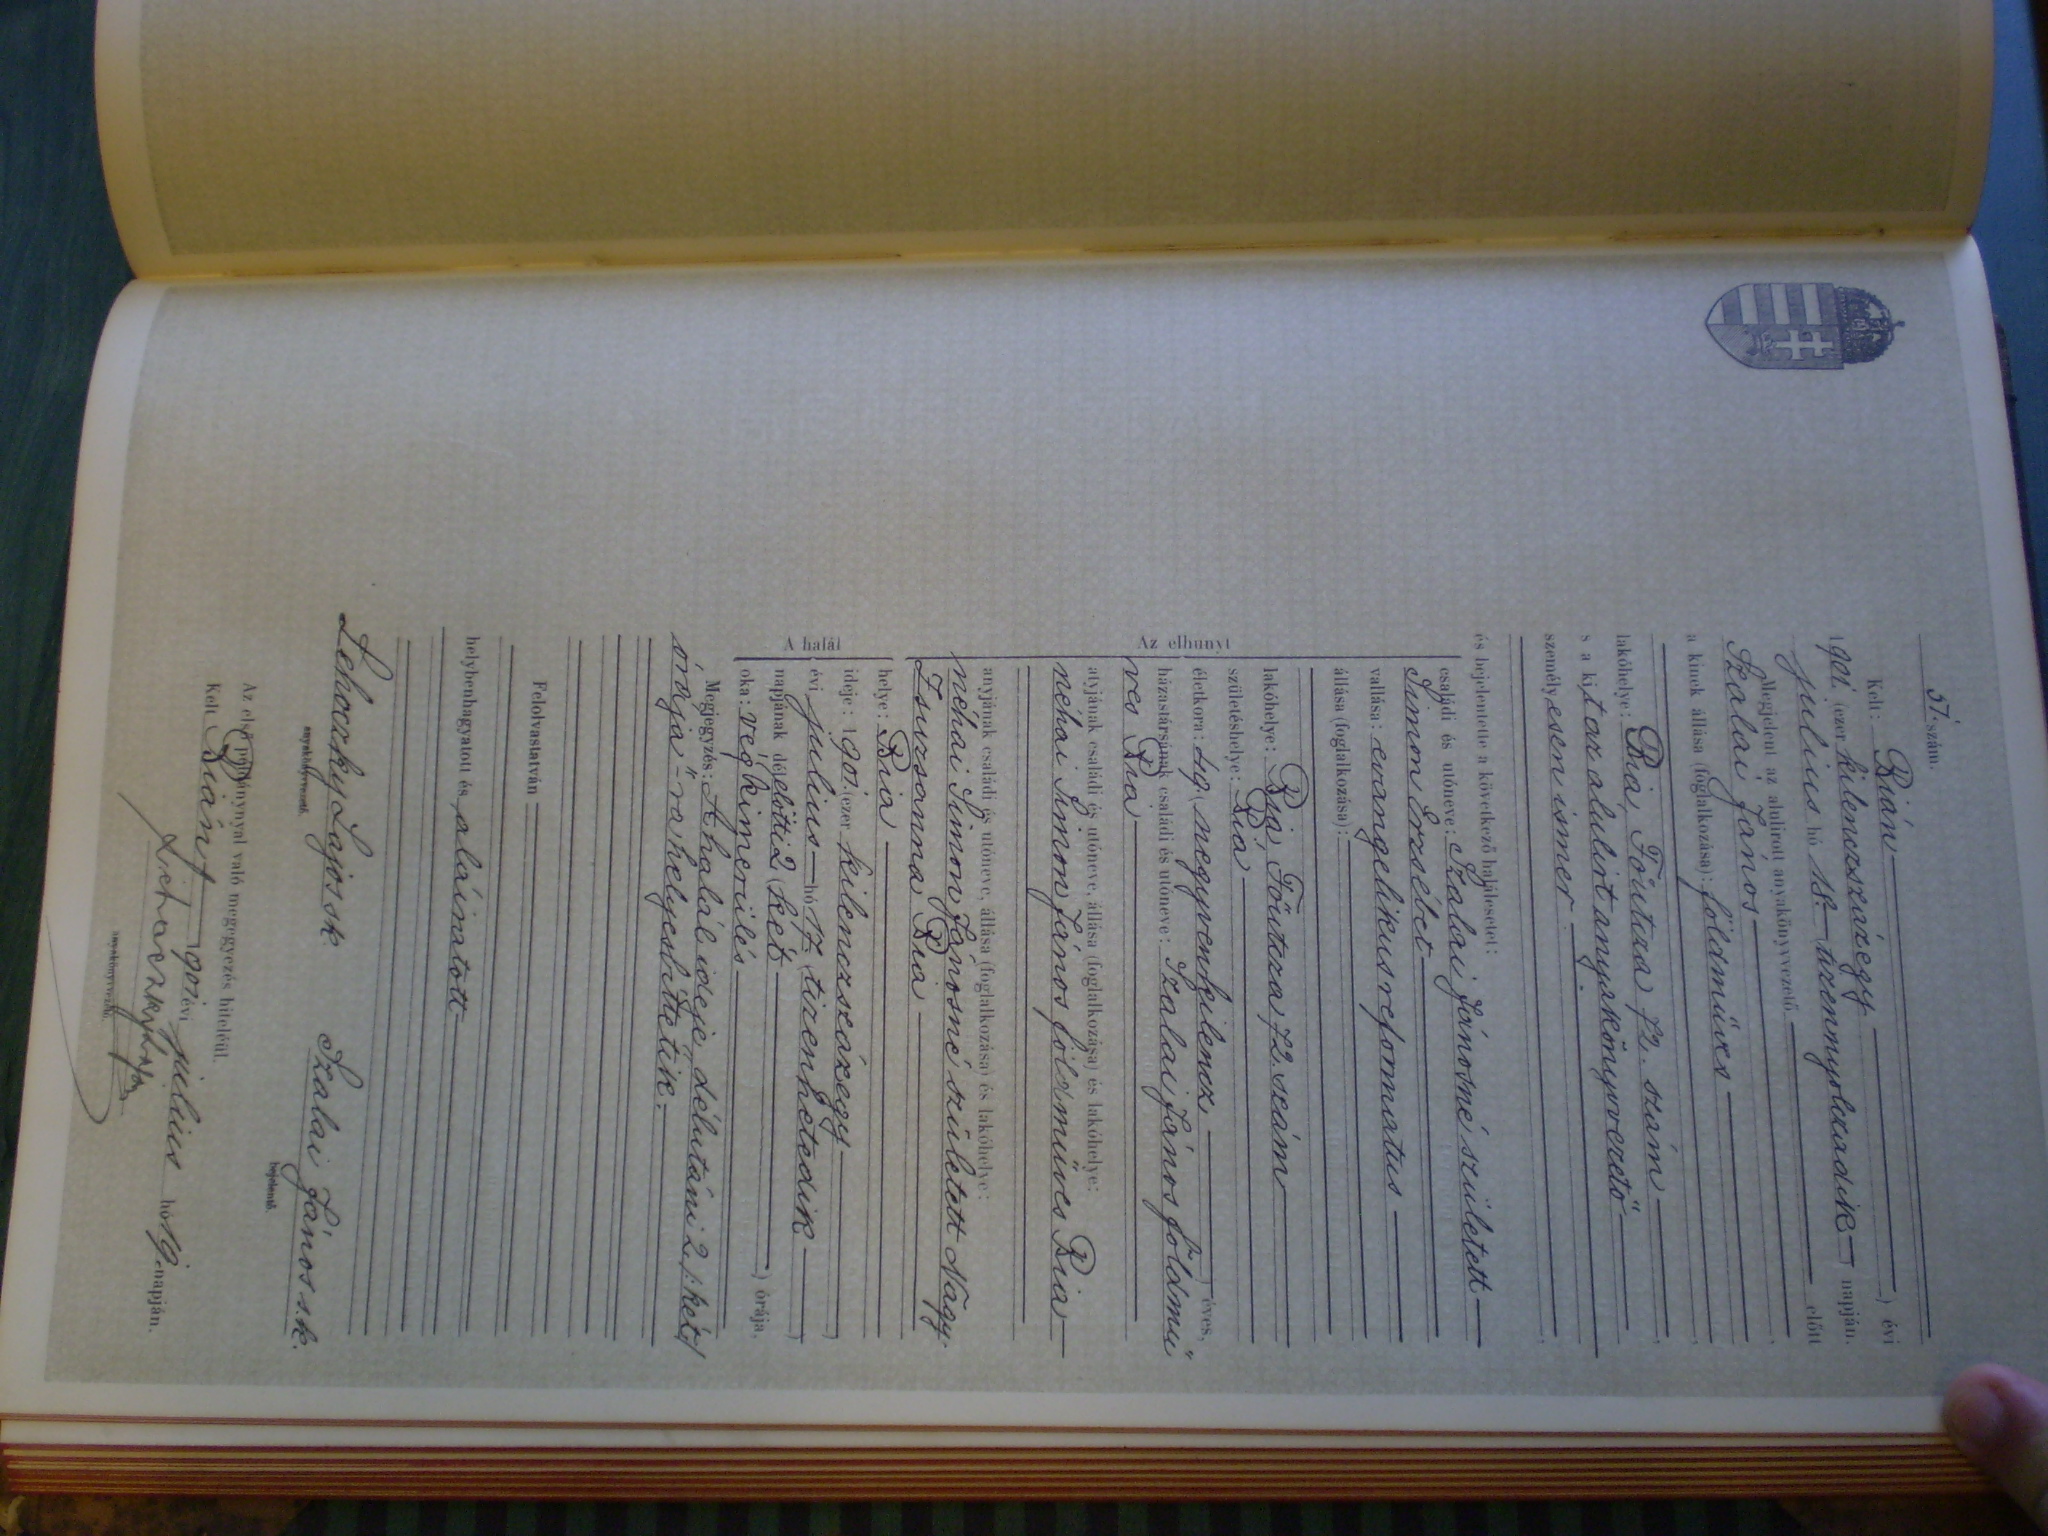 51. szám.
Kelt: Bián évi
1901. (ezer kilenczszázegy
julius hó 18. tizennyolczadik napján.
Megjelent az alulirott anyakönyvvezető előtt
Szalai János
a kinek állása (foglalkozása): földmüves
lakóhelye: Bia, Főutcza 72. szám
s a kit az alulirt anyakönyvvezető
személyesen ismer
és bejelentette a következő halálesetet:
Az elhunyt
családi és utóneve: Szalai Jánosné született
Simon Erzsébet
vallása: evangélikus reformatus
állása (foglalkozása):
lakóhelye: Bia, Főutcza 72. szám
születéshelye: Bia
életkora: 49. (negyvenkilencz) éves,
házastársának családi és utóneve: Szalai János földmü"
ves Bia
atyjának családi és utóneve, állása (foglalkozása) és lakóhelye:
néhai Simon János földmüves Bia
anyjának családi és utóneve, állása (foglalkozása) és lakóhelye:
néhai Simon Jánosné született Nagy
Zsuzsanna Bia
A halál
helye: Bia
ideje: 1901. (ezer kilenczszázegy
évi julius hó 17 (tizenhetedik)
napjának délelőtti 2 (két) órája,
oka: végkimerülés
Megjegyzés: A halál ideje „délutáni 2 (két)
órája"-ra helyesbittetik.
Felolvastatván
helybenhagyatott és aláiratott
Lehoczky Lajos sk.
anyakönyvvezető.
Szalai János s.k.
bejelentő.
Az első példánynyal való megegyezés hiteléül.
Kelt Bián, 1901 évi julius hó 19. napján.
Lehoczky Lajos
anyakönyvvezető.